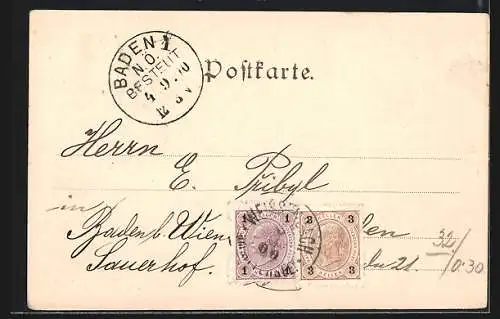 BADEN 1
N.Ö.
BESTELLT
4 9 00
Postkarte.
Herrn
E. Pribyl
in
Baden b/ Wien
Sauerhof.
1 1
3 3
1 1
3 3
HELLER
21.
32/
0.30